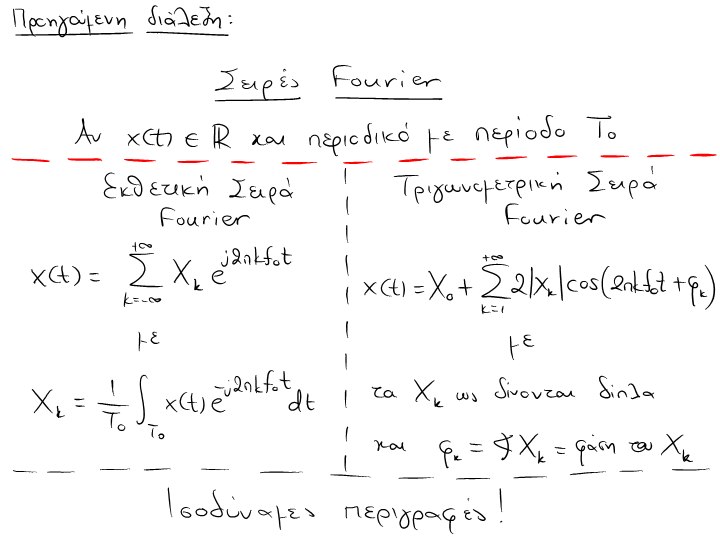 Προηγούμενη διάλεξη:
Σειρές Fourier
Αν x(t) ∈ ℝ και περιοδικό με περίοδο T₀
Εκθετική Σειρά
Fourier
x(t) = ∑_{k=-∞}^{+∞} X_k e^{j2πkf₀t}
με
X_k = 1/T₀ ∫_{T₀} x(t) e^{-j2πkf₀t} dt
Τριγωνομετρική Σειρά
Fourier
x(t) = X₀ + ∑_{k=1}^{+∞} 2|X_k| cos(2πkf₀t + φ_k)
με
τα X_k ως δίνονται δίπλα
και φ_k = ∢X_k = φάση του X_k
Ισοδύναμες περιγραφές!